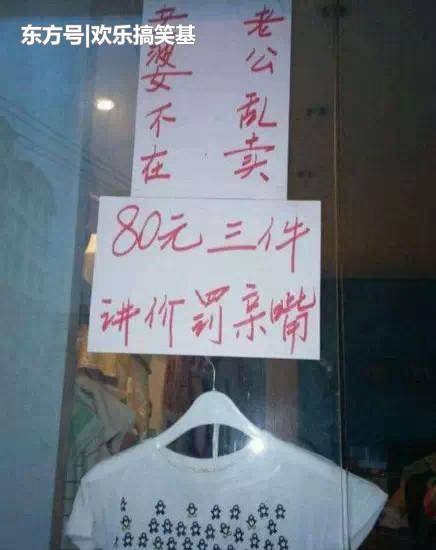 东方号|欢乐搞笑基
老婆不在
老公乱卖
80元三件
讲价罚亲嘴